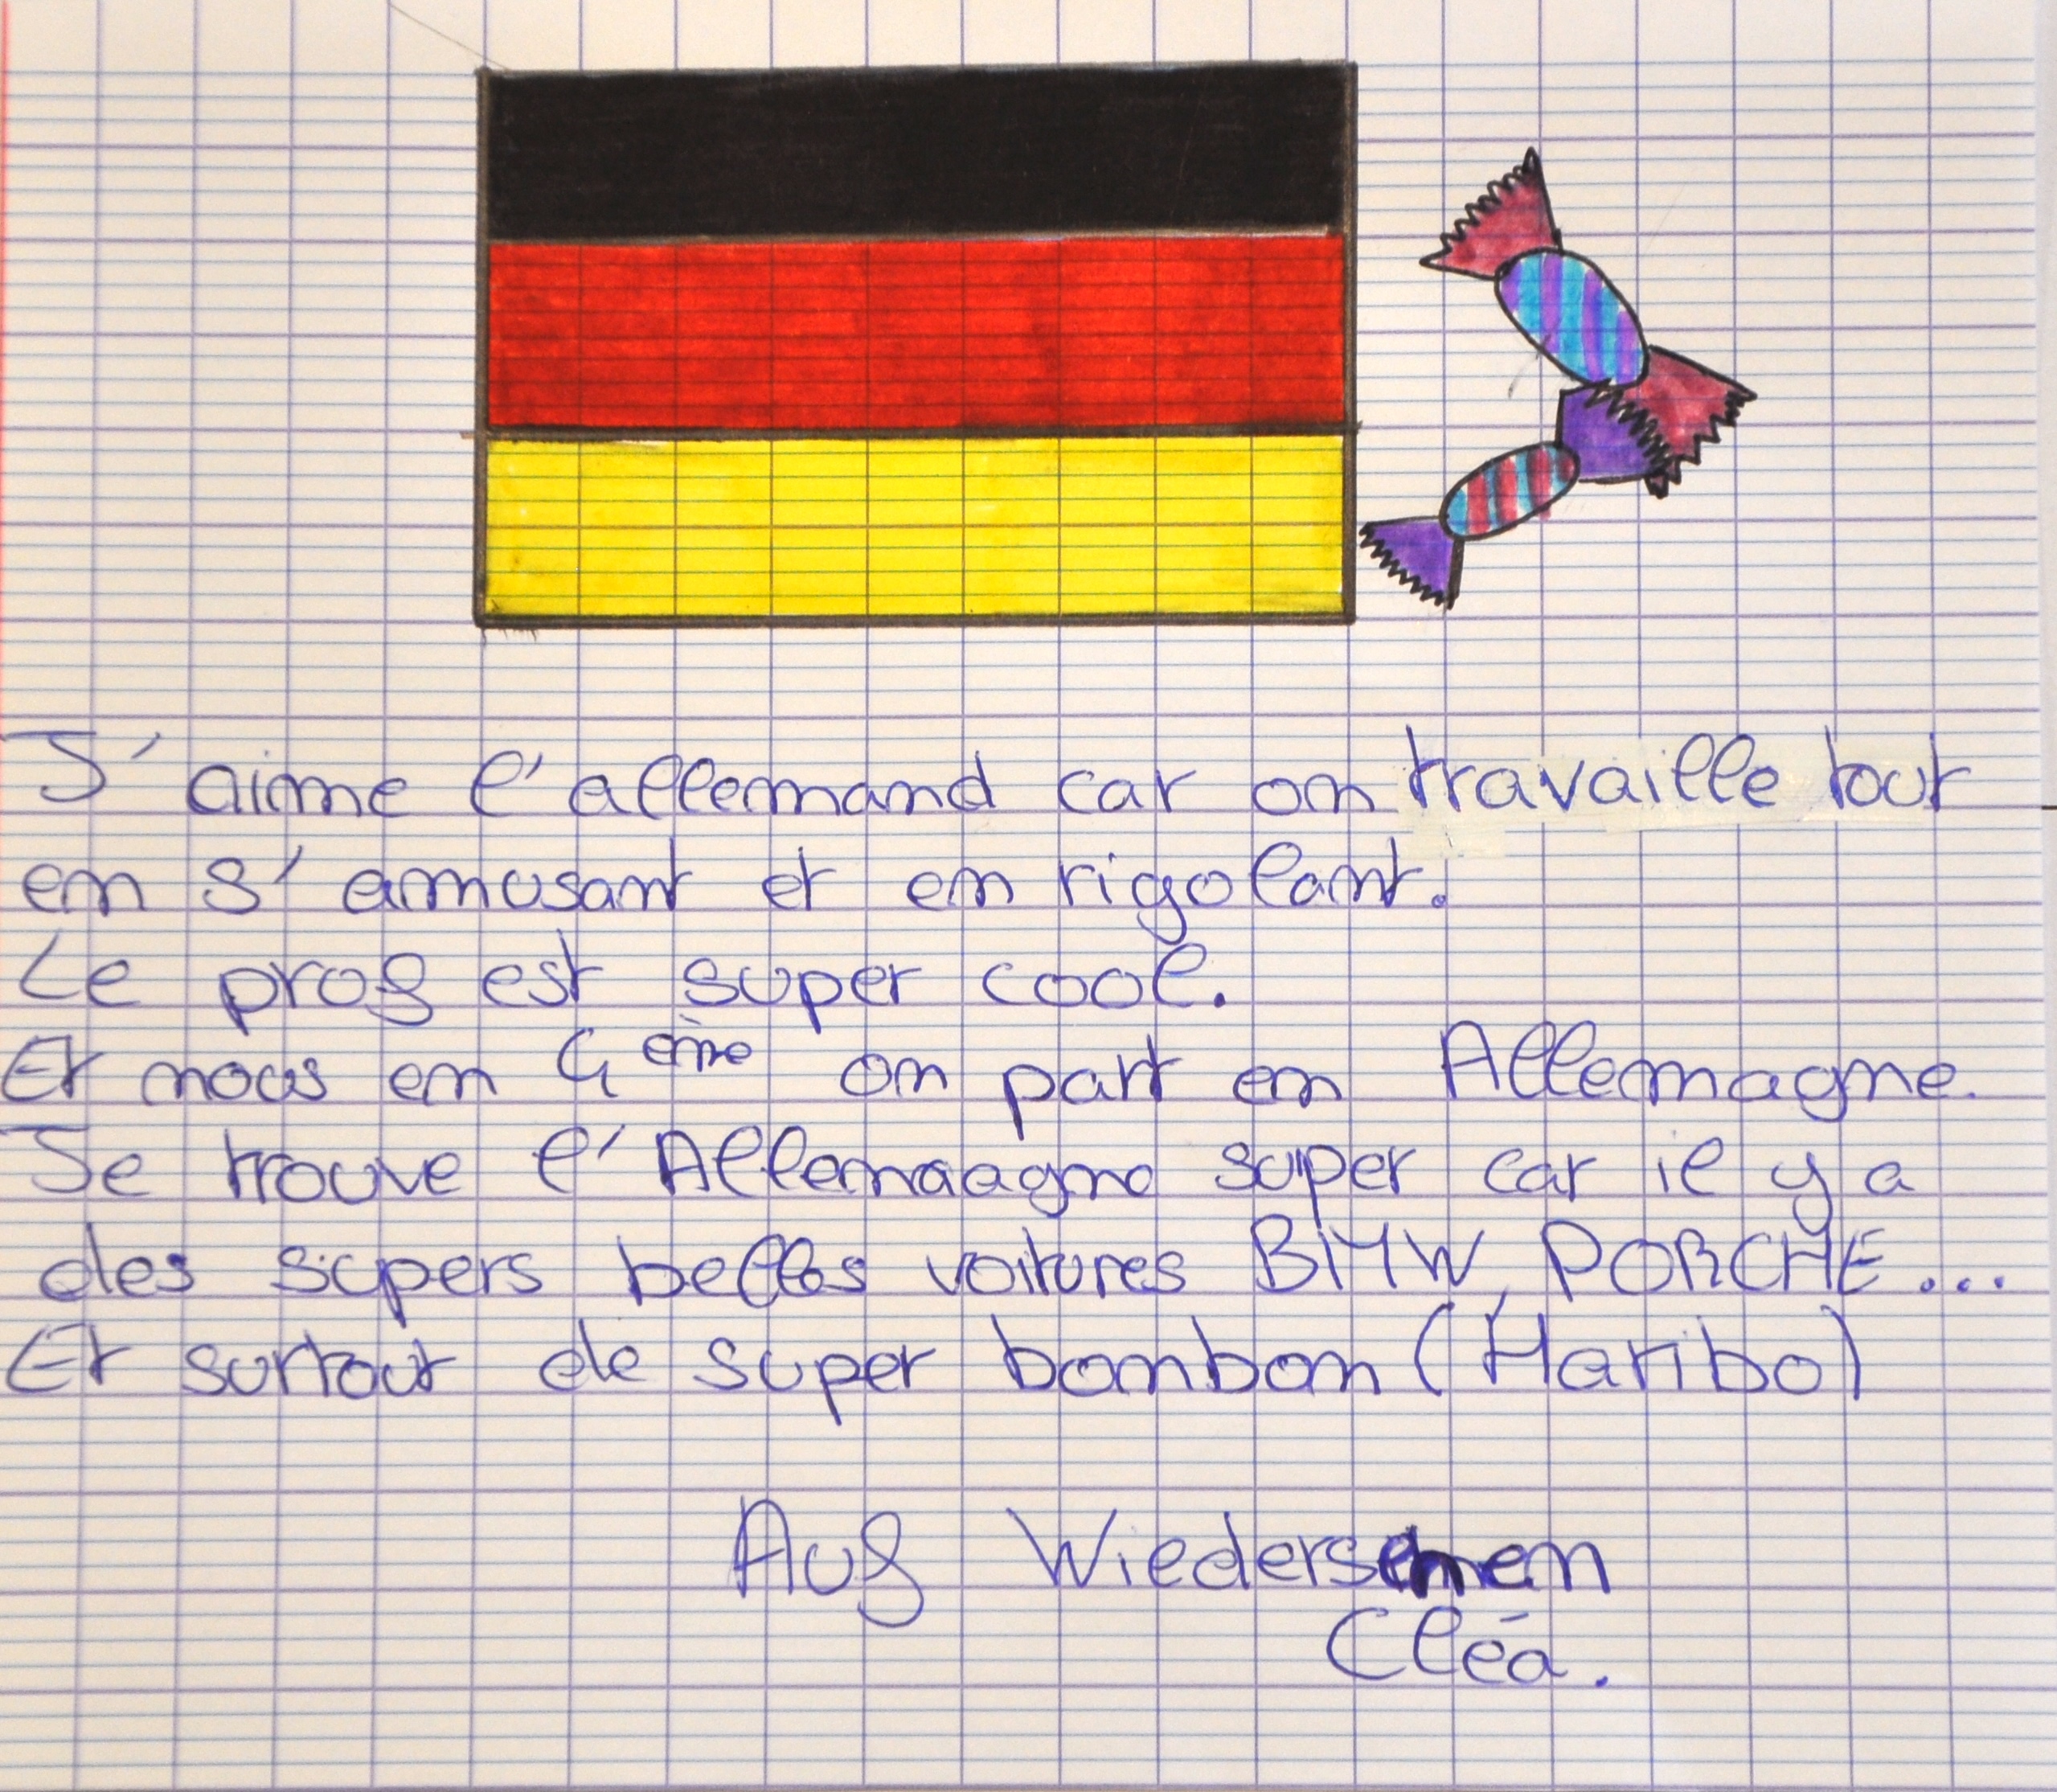 J'aime l'allemand car on travaille tout
en s'amusant et en rigolant.
Le prof est super cool.
Et nous en 4ème on part en Allemagne.
Je trouve l'Allemaagne super car il y a
des supers belles voitures BMW, PORCHE...
Et surtout de super bonbon (Haribo)
Auf Wiedersehen
Cléa.